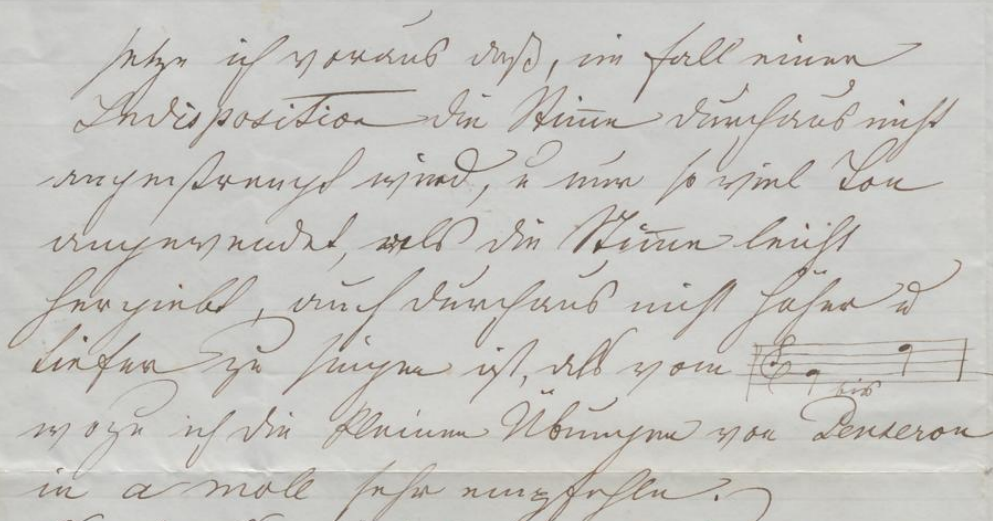 setze ich voraus daß, im fall einer
Indisposition die Stim̄e durchaus nicht
angestrengt wird, u nur so viel Ton
angewendet, als die Stim̄e leicht
hergiebt, auch durchaus nicht höher u
tiefer zu singen ist, als vom
bis
wozu ich die kleinen Übungen von Panseron
in a moll sehr empfehle.